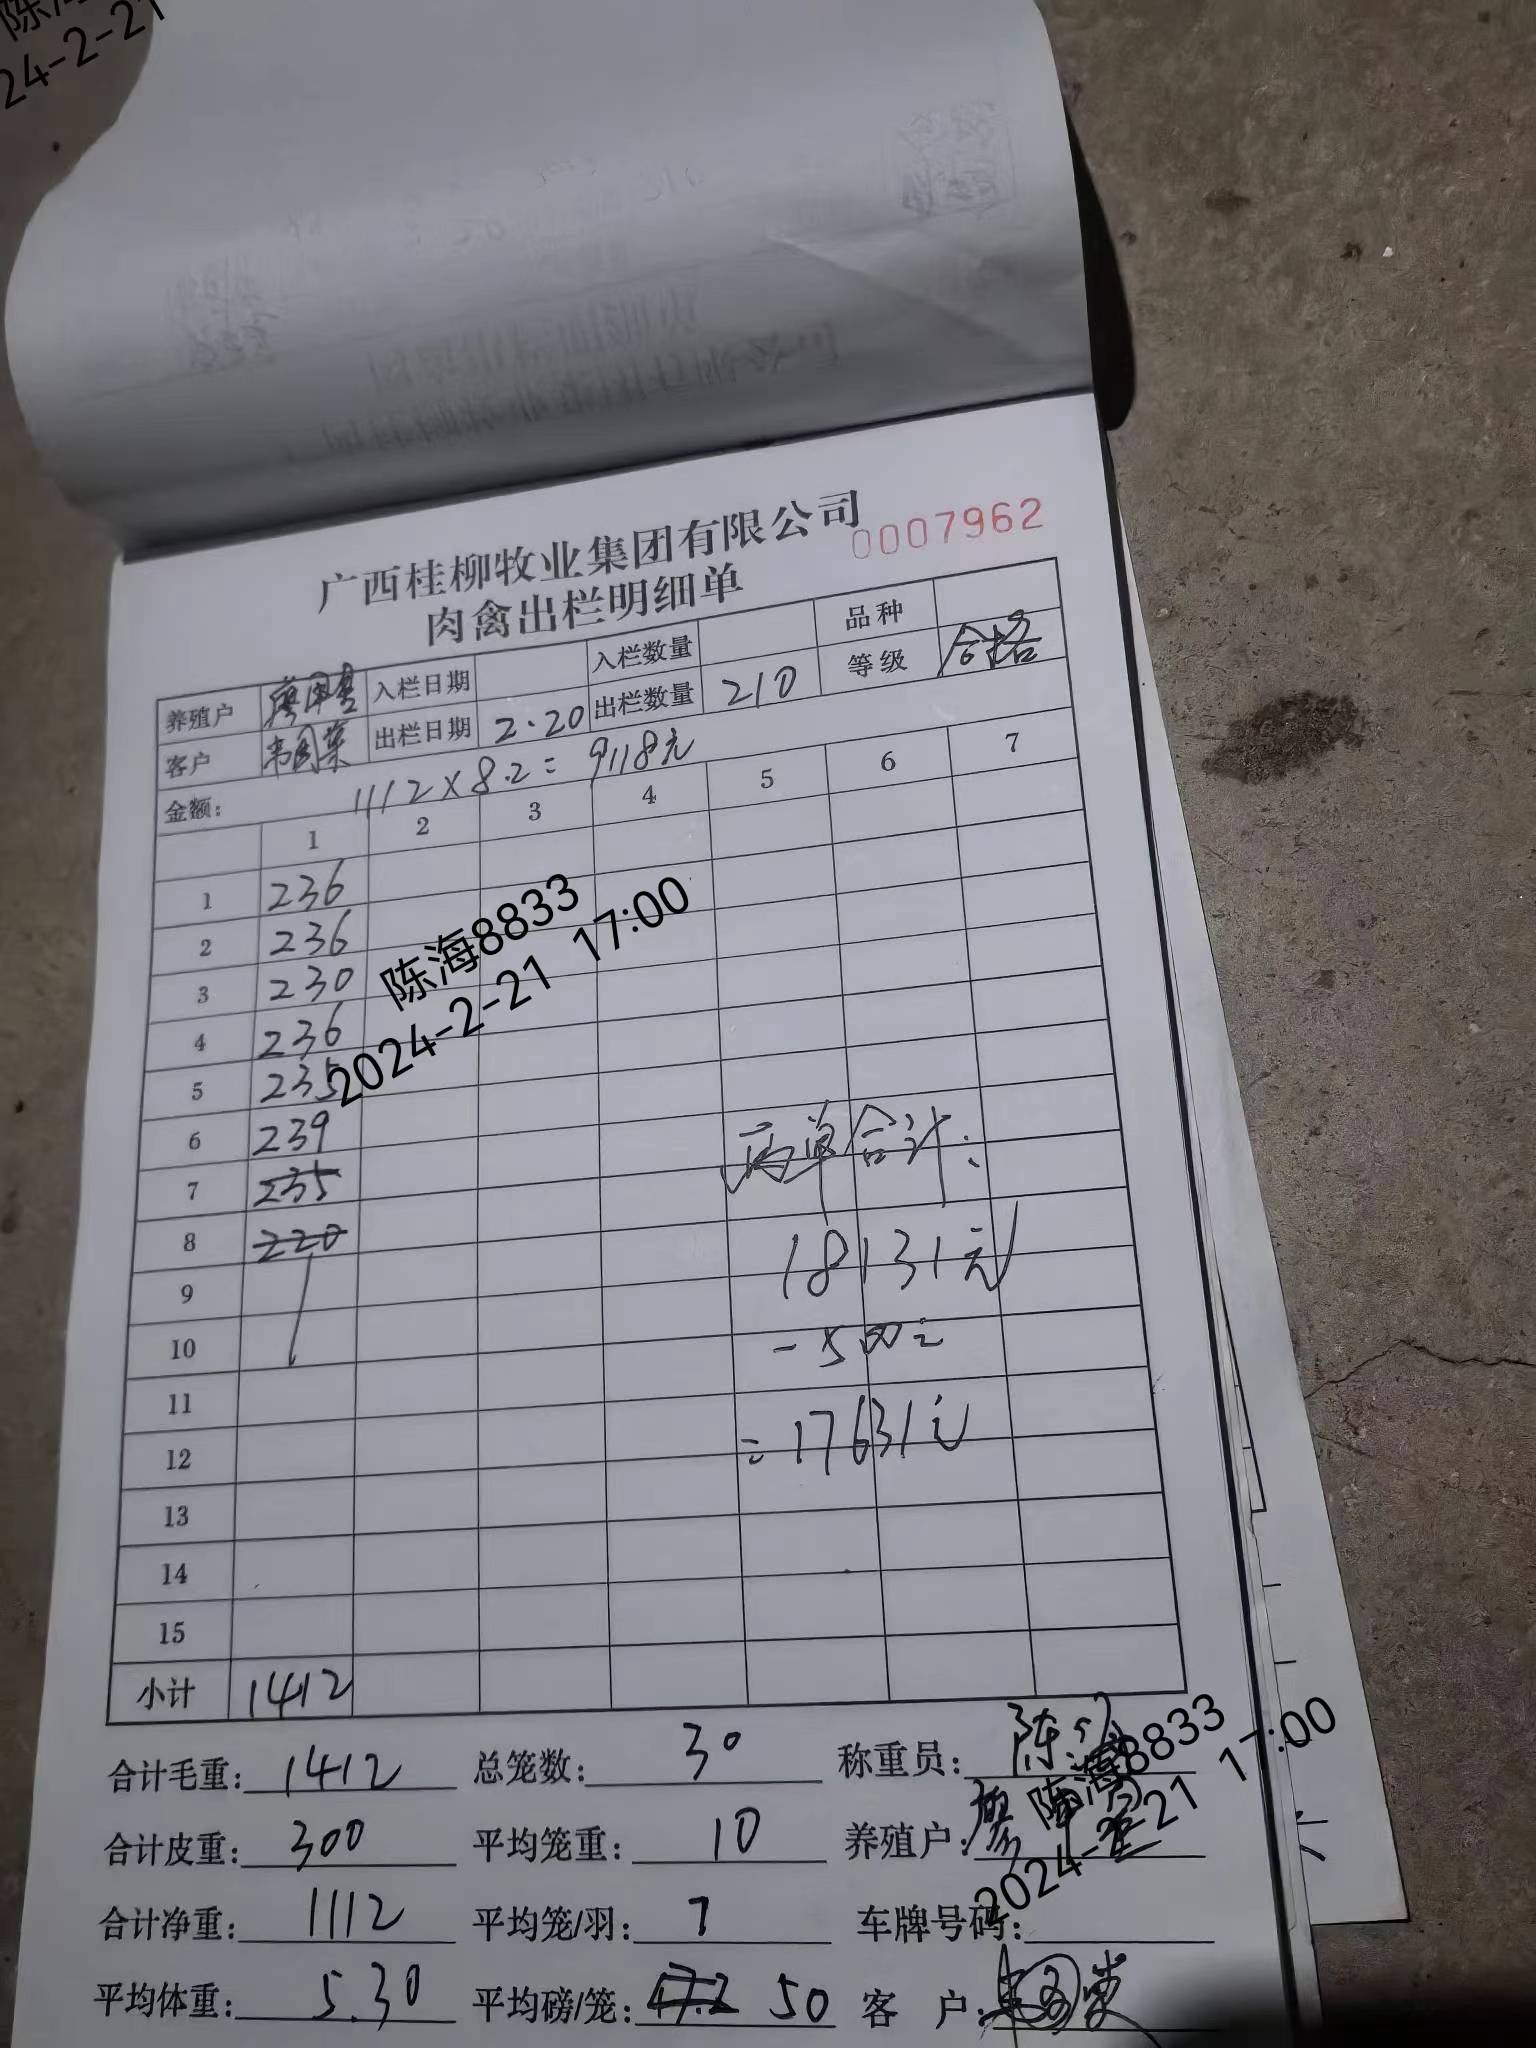 24-2-21
广西桂柳牧业集团有限公司
0007962
肉禽出栏明细单
养殖户 入栏日期 入栏数量 品种
客户 韦国荣 出栏日期 2.20 出栏数量 210 等级 合格
金额: 1112×8.2=9118元
1 2 3 4 5 6 7
1 236
2 236
3 230
4 236
5 235
6 239
7 235
8 220
9
10
11
12
13
14
15
小计 1412
陈海8833
2024-2-21 17:00
两单合计:
18131元
-500元
=17631元
合计毛重: 1412 总笼数: 30 称重员: 陈海
合计皮重: 300 平均笼重: 10 养殖户:
合计净重: 1112 平均笼/羽: 7 车牌号码:
平均体重: 5.30 平均磅/笼: 47.2 50 客 户: 韦国荣
陈海8833
2024-2-21 17:00